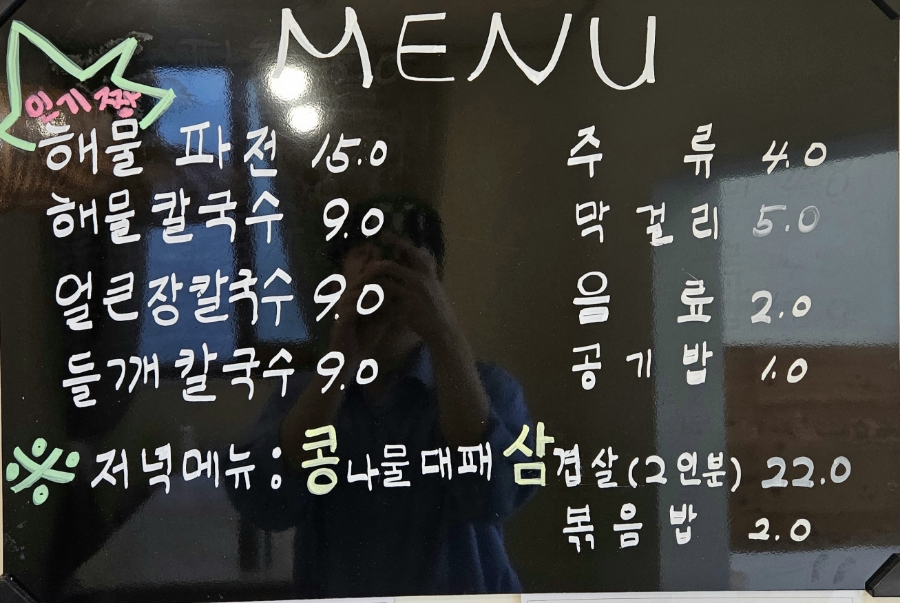 MENU
인기 짱
해물 파전 15.0
해물 칼국수 9.0
얼큰장칼국수 9.0
들깨 칼국수 9.0
주 류 4.0
막걸리 5.0
음 료 2.0
공기밥 1.0
※ 저녁메뉴 : 콩나물 대패 삼겹살 (2인분) 22.0
볶음밥 2.0